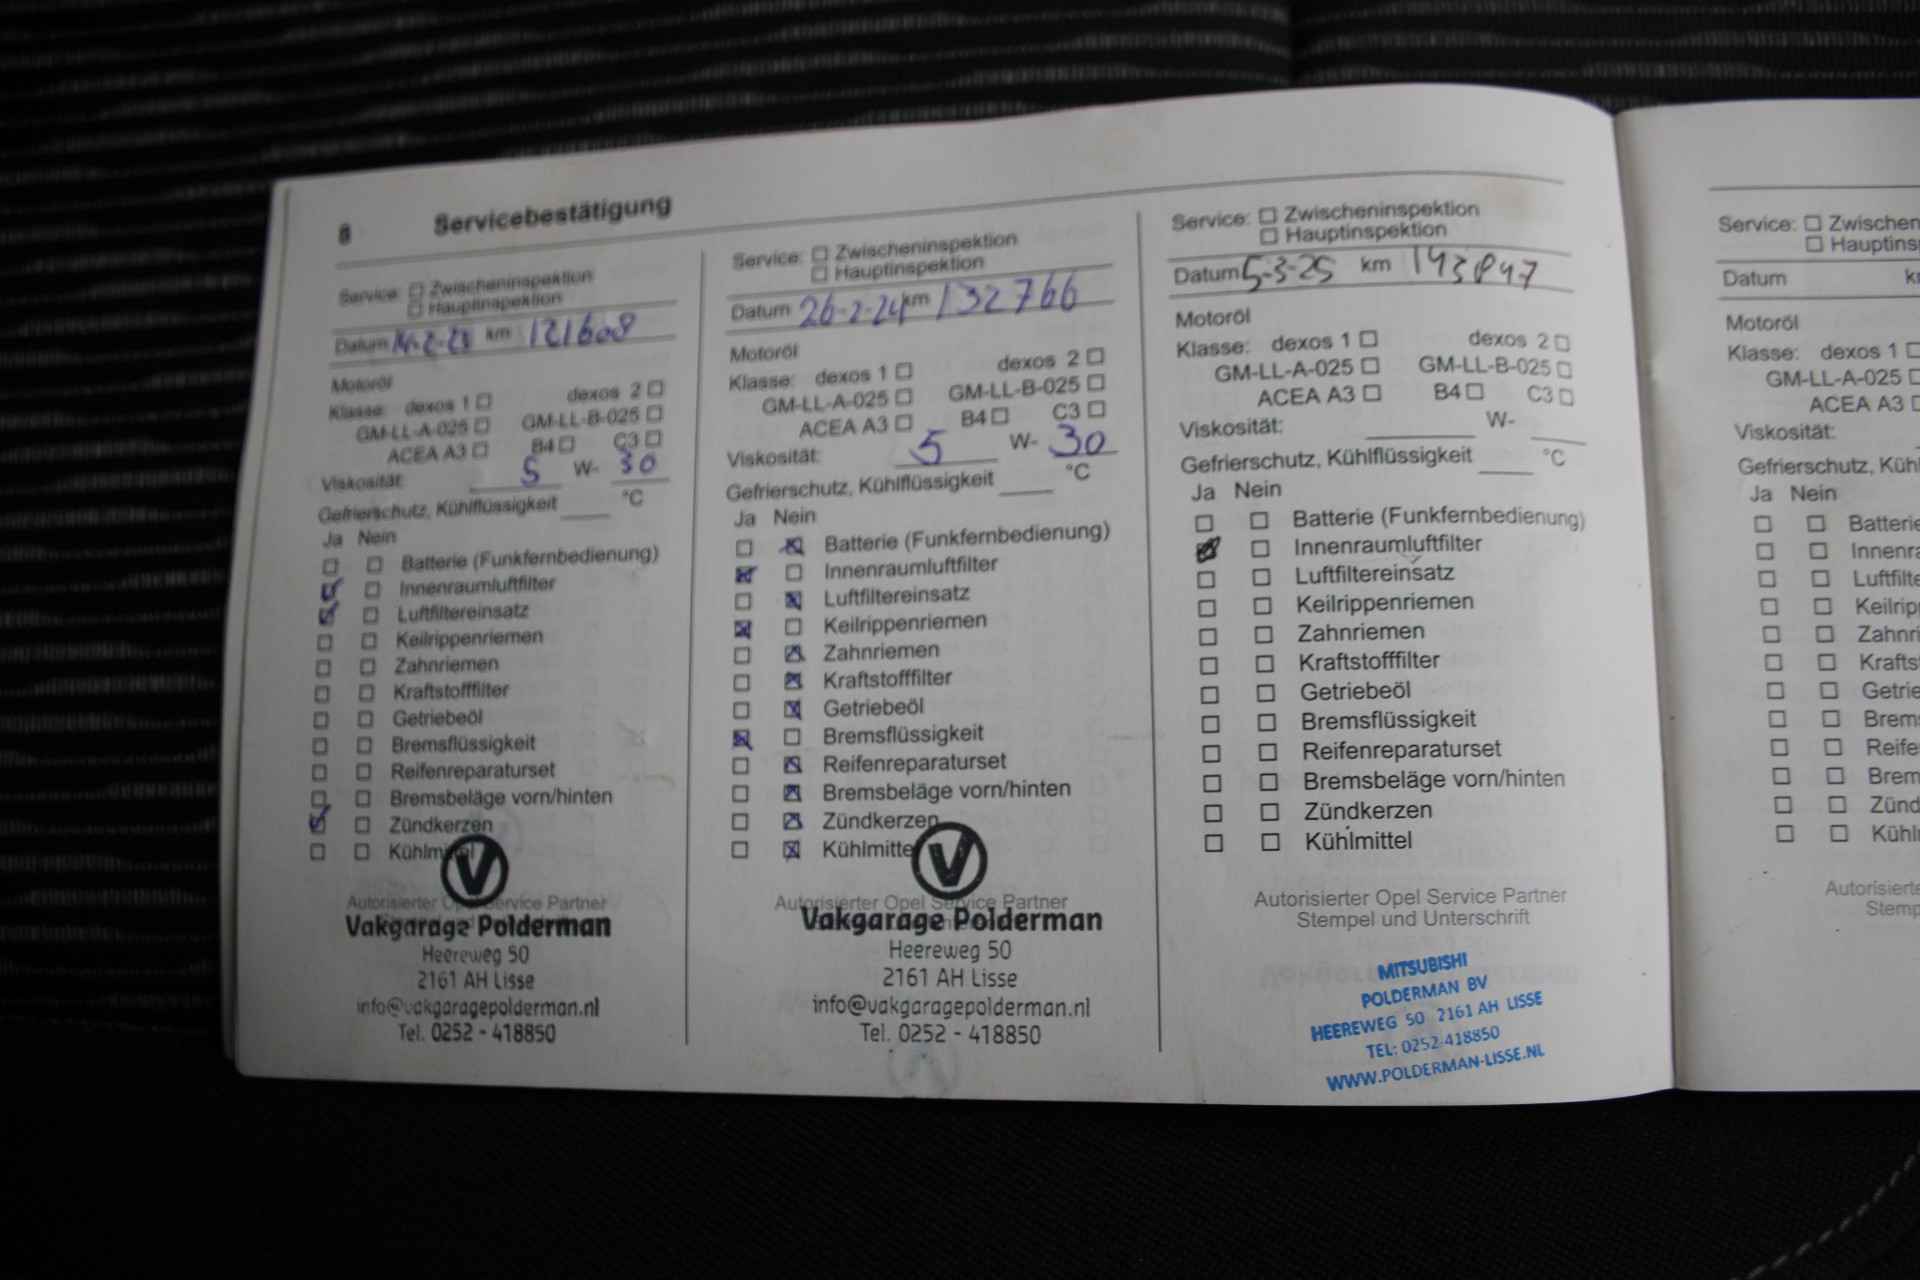 8 Servicebestätigung
Service: Zwischeninspektion
Hauptinspektion
Datum 14-2-23 km 121608
Motoröl
Klasse: dexos 1 dexos 2
GM-LL-A-025 GM-LL-B-025
ACEA A3 B4 C3
Viskosität: 5 W- 30
Gefrierschutz, Kühlflüssigkeit °C
Ja Nein
Batterie (Funkfernbedienung)
Innenraumluftfilter
Luftfiltereinsatz
Keilrippenriemen
Zahnriemen
Kraftstofffilter
Getriebeöl
Bremsflüssigkeit
Reifenreparaturset
Bremsbeläge vorn/hinten
Zündkerzen
Kühlmittel
Autorisierter Opel Service Partner
Vakgarage Polderman
Heereweg 50
2161 AH Lisse
info@vakgaragepolderman.nl
Tel. 0252 - 418850
Service: Zwischeninspektion
Hauptinspektion
Datum 26-2-24 km 132766
Motoröl
Klasse: dexos 1 dexos 2
GM-LL-A-025 GM-LL-B-025
ACEA A3 B4 C3
Viskosität: 5 W- 30
Gefrierschutz, Kühlflüssigkeit °C
Ja Nein
Batterie (Funkfernbedienung)
Innenraumluftfilter
Luftfiltereinsatz
Keilrippenriemen
Zahnriemen
Kraftstofffilter
Getriebeöl
Bremsflüssigkeit
Reifenreparaturset
Bremsbeläge vorn/hinten
Zündkerzen
Kühlmittel
Autorisierter Opel Service Partner
Vakgarage Polderman
Heereweg 50
2161 AH Lisse
info@vakgaragepolderman.nl
Tel. 0252 - 418850
Service: Zwischeninspektion
Hauptinspektion
Datum 5-3-25 km 143847
Motoröl
Klasse: dexos 1 dexos 2
GM-LL-A-025 GM-LL-B-025
ACEA A3 B4 C3
Viskosität: W-
Gefrierschutz, Kühlflüssigkeit °C
Ja Nein
Batterie (Funkfernbedienung)
Innenraumluftfilter
Luftfiltereinsatz
Keilrippenriemen
Zahnriemen
Kraftstofffilter
Getriebeöl
Bremsflüssigkeit
Reifenreparaturset
Bremsbeläge vorn/hinten
Zündkerzen
Kühlmittel
Autorisierter Opel Service Partner
Stempel und Unterschrift
MITSUBISHI
POLDERMAN BV
HEEREWEG 50 2161 AH LISSE
TEL: 0252-418850
WWW.POLDERMAN-LISSE.NL
Service: Zwischen
Hauptins
Datum k
Motoröl
Klasse: dexos 1
GM-LL-A-025
ACEA A3
Viskosität:
Gefrierschutz, Kühl
Ja Nein
Batterie
Innenra
Luftfilte
Keilripp
Zahnri
Krafts
Getrie
Brems
Reife
Brem
Zünd
Kühl
Autorisierte
Stemp